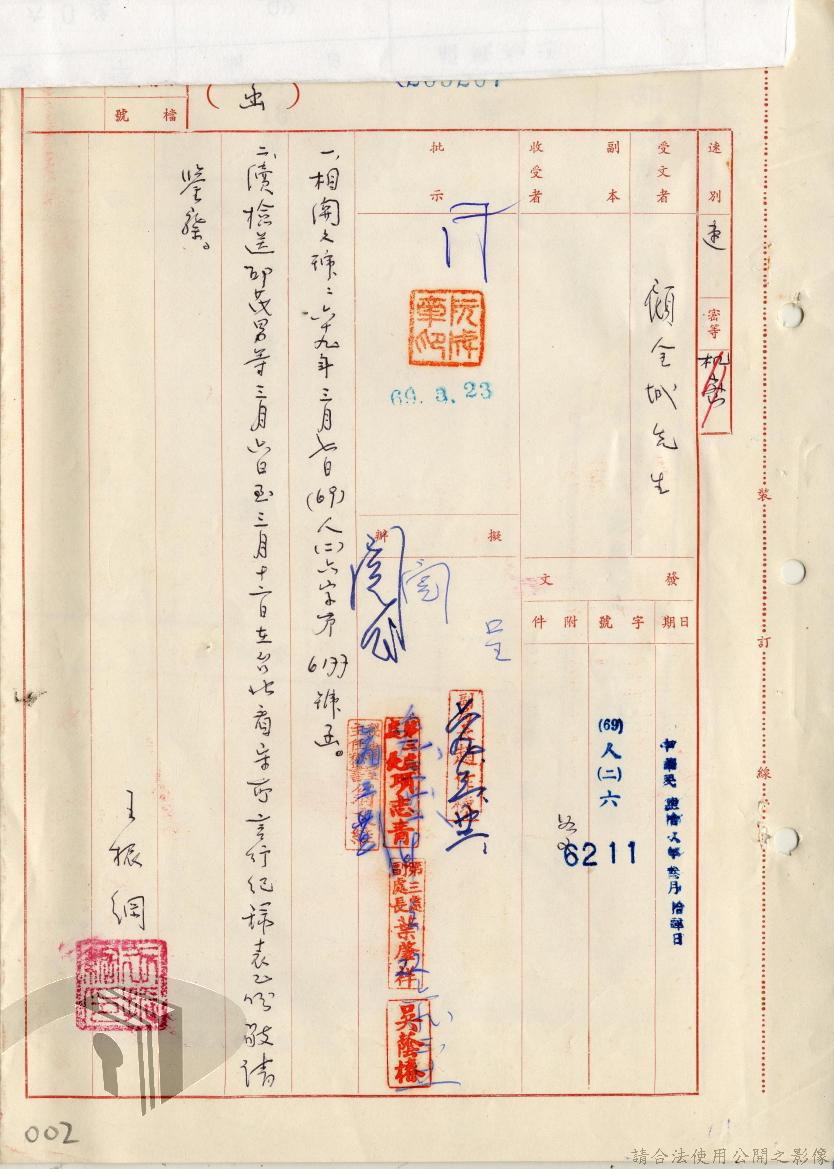 檔號
(函)
速別
速
密等
機密
受文者
顧全城先生
副本
收受者
批示
阮成章印
69. 3. 23
擬辦
閱
呈
發文
日期
字號
附件
(69)
人(二)六
6211
一、相關文號:六十九年三月七日(69)人(二)六字第6177號函。
二、續檢送邱茂男等三月六日至三月十二日在台北看守所言行紀錄表乙份敬請
鑒察。
王振綱
第三處
副處長
葉肇祥
吳蔭椿
裝
訂
線
002
請合法使用公開之影像